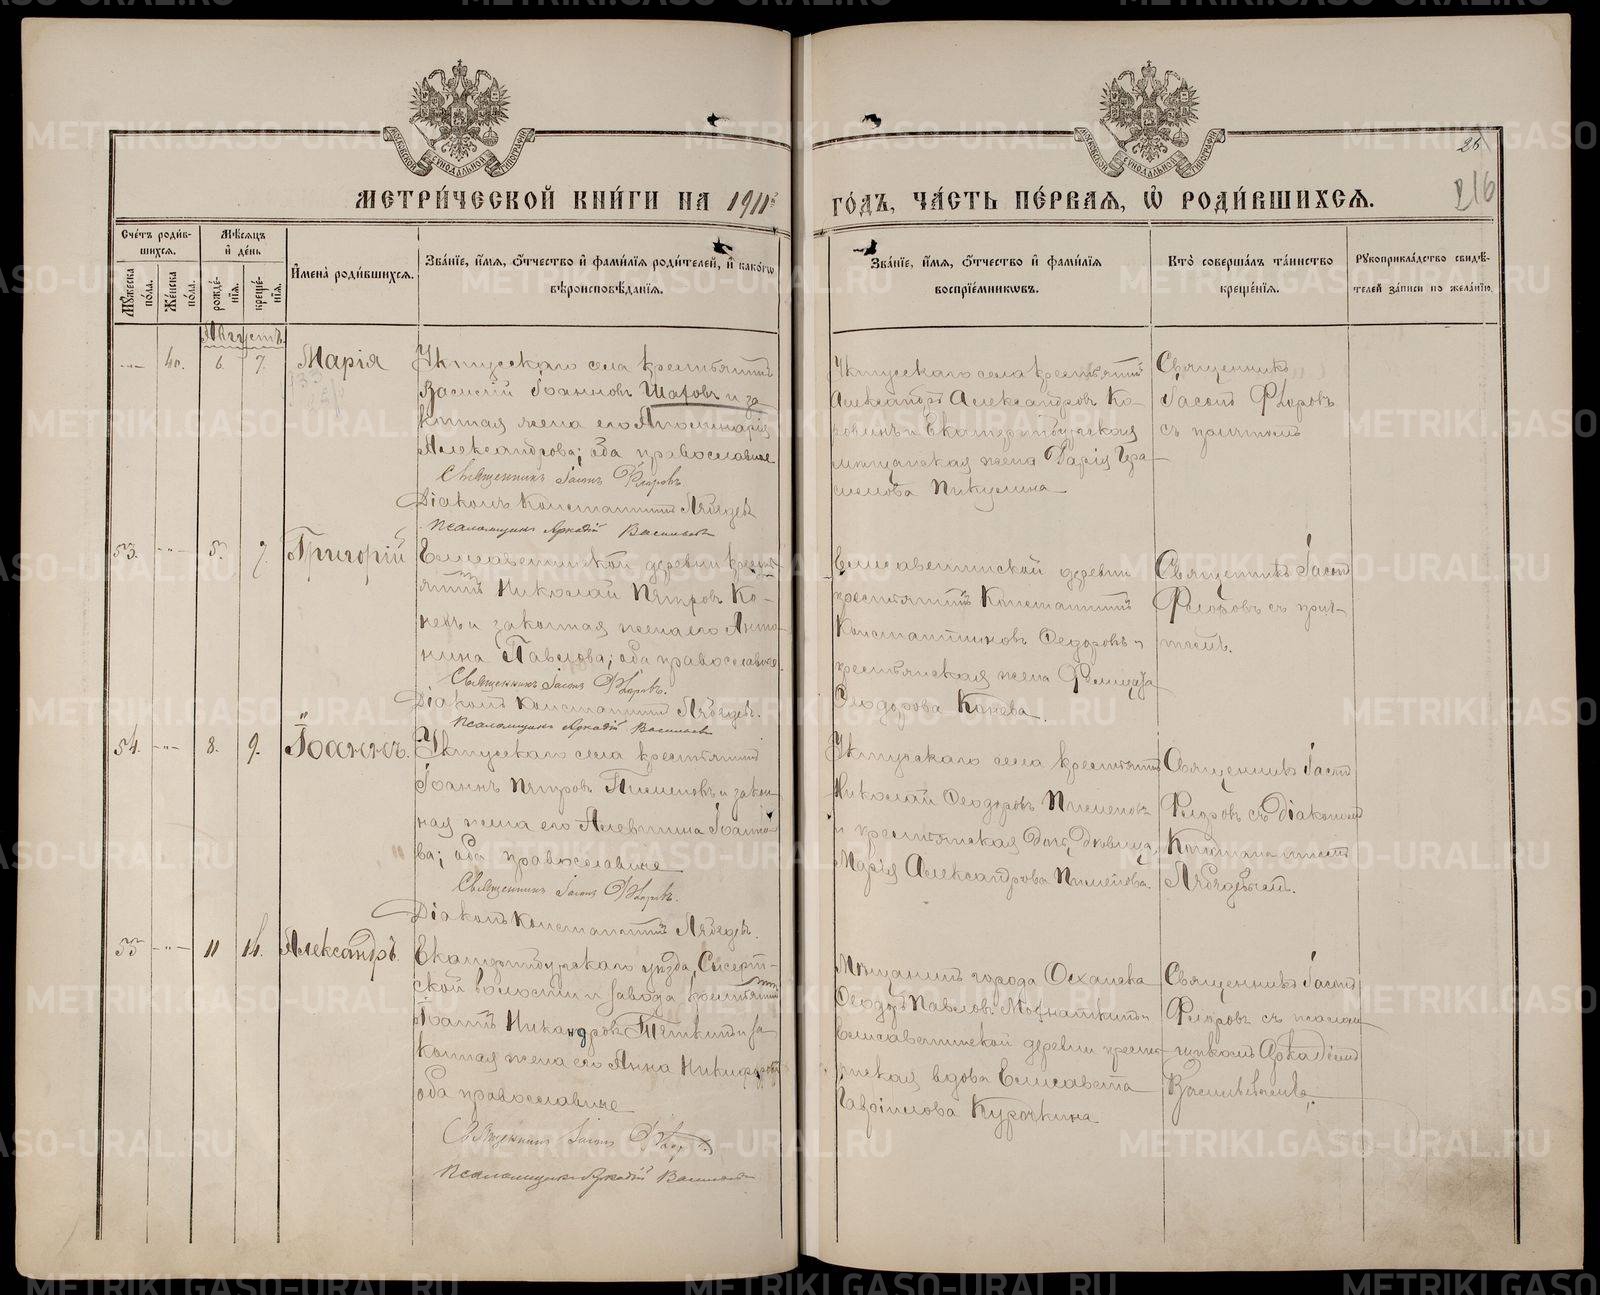 МЕТРИ́ЧЕСКОЙ КНИ́ГИ НА 1911й
ГО́ДЪ, ЧА́СТЬ ПЕ́РВАѦ, Ѡ҆ РОДИ́ВШИХСѦ.
26
216
Сче́тъ роди́в-
шихсѧ.
Мѣ́сѧцъ
и҆ де́нь
Мꙋ́жеска по́ла.
Же́нска по́ла.
рожде́-нїѧ.
креще́-нїѧ.
И҆мена̀ роди́вшихсѧ.
Зва́нїе, и҆́мѧ, ѻ҆́тчество и҆ фами́лїѧ роди́телей, и҆ како́гѡ
вѣроисповѣ́данїѧ.
Зва́нїе, и҆́мѧ, ѻ҆́тчество и҆ фами́лїѧ
воспрїе́мникѡвъ.
Кто̀ соверша́лъ та́инство
креще́нїѧ.
Рꙋкоприкла́дство свидѣ́-
телей за́писи по жела́нїю.
Августъ.
40. 6. 7. Марія
Уктусскаго села крестьянинъ
Василій Іоанновъ Шаровъ и за-
конная жена его Аполинарія
Александрова; оба православные
Священникъ Іасонъ Флоровъ
Діаконъ Константинъ Лебедевъ
Псаломщикъ Аркадій Васильевъ
Уктусскаго села крестьянинъ
Александръ Александровъ Ко-
ровинъ и Екатеринбургская
мещанская жена Дарія Гра-
Пикулина
Священникъ
Іасонъ Флоровъ
съ причтомъ
53. 5. 7. Григорій
Елисаветинской деревни кресть-
янинъ Николай Петровъ Ко-
невъ и законная жена его Анто-
нина Павлова; оба православные.
Священникъ Іасонъ Флоровъ.
Діаконъ Константинъ Лебедевъ.
Псаломщикъ Аркадій Васильевъ
Елисаветинской деревни
крестьянинъ Константинъ
Константиновъ Ѳедоровъ и
крестьянская жена
Ѳеодорова Конева.
Священникъ Іасонъ
Флоровъ съ прич-
томъ.
54. 8. 9. Іоаннъ.
Уктусскаго села крестьянинъ
Іоаннъ Петровъ Пименовъ и закон-
ная жена его Алевтина Іоанно-
ва; оба православные
Священникъ Іасонъ Флоровъ.
Діаконъ Константинъ Лебедевъ.
Уктусскаго села крестьянинъ
Николай Ѳеодоровъ Пименовъ
и крестьянская дочь, девица
Марія Александрова Пименова.
Священникъ Іасонъ
Флоровъ съ діакономъ
Константиномъ
Лебедевымъ.
55 11 14. Александръ.
Екатеринбургскаго уезда, Сысерт-
ской волости и завода крестьянинъ
Іоаннъ Никандровъ и за-
конная жена его Анна Никифорова
оба православные
Священникъ Іасонъ Флоровъ
Псаломщикъ Аркадій Васильевъ
Мещанинъ города Оханска
Ѳеодоръ Павловъ и
Елисаветинской деревни кресть-
янская вдова Елисавета
Гавріилова Курочкина
Священникъ Іасонъ
Флоровъ съ псалом-
щикомъ Аркадіемъ
Васильевымъ.
METRIKI.GASO-URAL.RU